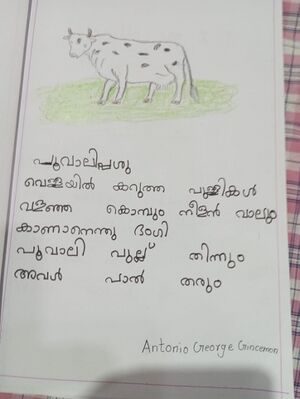 പൂവാലിപ്പശു
വെള്ളയിൽ കറുത്ത പുള്ളികൾ
വളഞ്ഞ കൊമ്പും നീളൻ വാലും
കാണാനെന്തു ഭംഗി
പൂവാലി പുല്ല് തിന്നും
അവൾ പാൽ തരും
Antonio George Gincemon